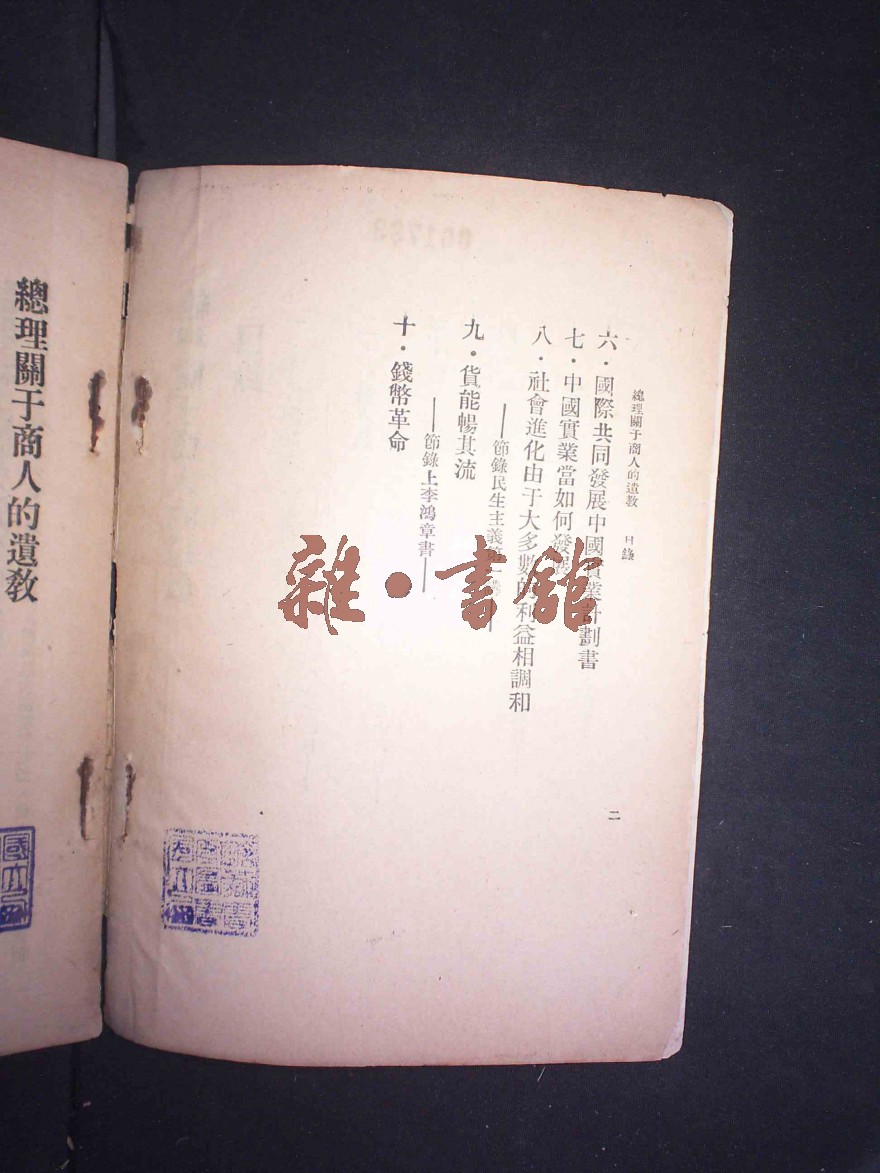 總理關于商人的遺教 目錄
六・國際共同發展中國實業計劃書
七・中國實業當如何發展
八・社會進化由于大多數的利益相調和
——節錄民生主義第一講——
九・貨能暢其流
——節錄上李鴻章書——
十・錢幣革命
二
總理關于商人的遺教
雜・書館